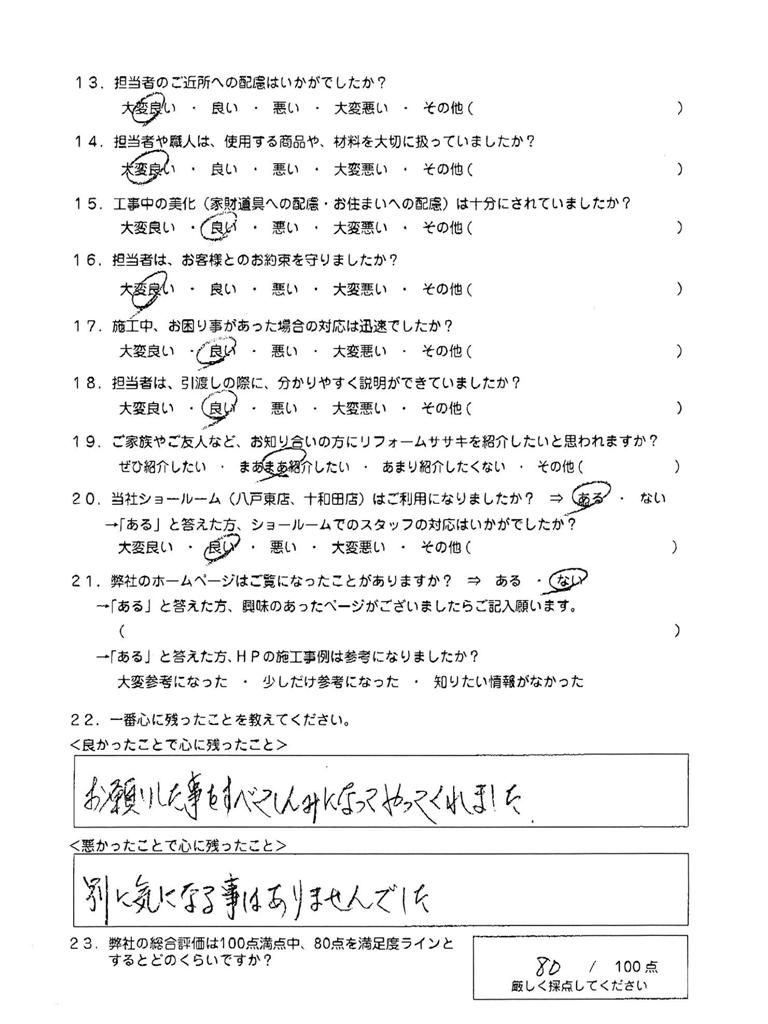 13．担当者のご近所への配慮はいかがでしたか？
大変良い ・ 良い ・ 悪い ・ 大変悪い ・ その他（ ）
14．担当者や職人は、使用する商品や、材料を大切に扱っていましたか？
大変良い ・ 良い ・ 悪い ・ 大変悪い ・ その他（ ）
15．工事中の美化（家財道具への配慮・お住まいへの配慮）は十分にされていましたか？
大変良い ・ 良い ・ 悪い ・ 大変悪い ・ その他（ ）
16．担当者は、お客様とのお約束を守りましたか？
大変良い ・ 良い ・ 悪い ・ 大変悪い ・ その他（ ）
17．施工中、お困り事があった場合の対応は迅速でしたか？
大変良い ・ 良い ・ 悪い ・ 大変悪い ・ その他（ ）
18．担当者は、引渡しの際に、分かりやすく説明ができていましたか？
大変良い ・ 良い ・ 悪い ・ 大変悪い ・ その他（ ）
19．ご家族やご友人など、お知り合いの方にリフォームササキを紹介したいと思われますか？
ぜひ紹介したい ・ まあまあ紹介したい ・ あまり紹介したくない ・ その他（ ）
20．当社ショールーム（八戸東店、十和田店）はご利用になりましたか？ ⇒ ある ・ ない
→「ある」と答えた方、ショールームでのスタッフの対応はいかがでしたか？
大変良い ・ 良い ・ 悪い ・ 大変悪い ・ その他（ ）
21．弊社のホームページはご覧になったことがありますか？ ⇒ ある ・ ない
→「ある」と答えた方、興味のあったページがございましたらご記入願います。
（ ）
→「ある」と答えた方、HPの施工事例は参考になりましたか？
大変参考になった ・ 少しだけ参考になった ・ 知りたい情報がなかった
22．一番心に残ったことを教えてください。
＜良かったことで心に残ったこと＞
お願いした事をすべてしんみになってやってくれました.
＜悪かったことで心に残ったこと＞
別に気になる事はありませんでした
23．弊社の総合評価は100点満点中、80点を満足度ラインと
するとどのくらいですか？
80 / 100点
厳しく採点してください